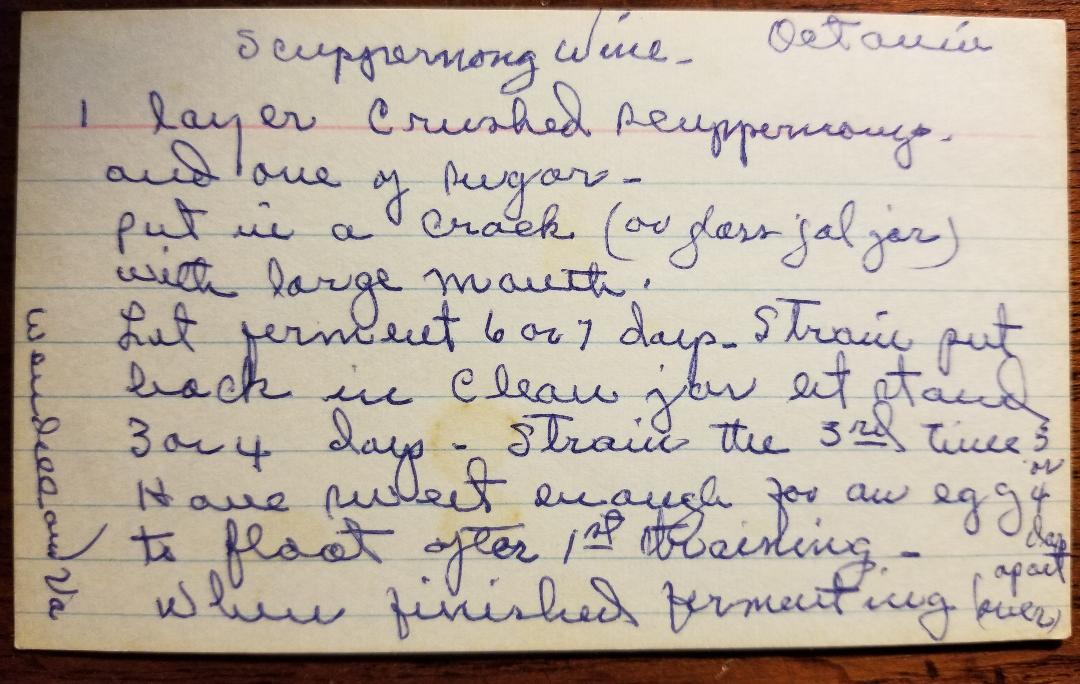 Scuppernong Wine - Octavia
1 layer Crushed Scuppernongs.
and one of sugar -
put in a crock (or glass jal jar)
with large mouth.
Let ferment 6 or 7 days - Strain put
back in Clean jar let stand
3 or 4 days - Strain the 3rd time 3
or
Have sweet enough for an egg 4
to float after 1st straining - days
apart
When finished fermenting (over)
Va